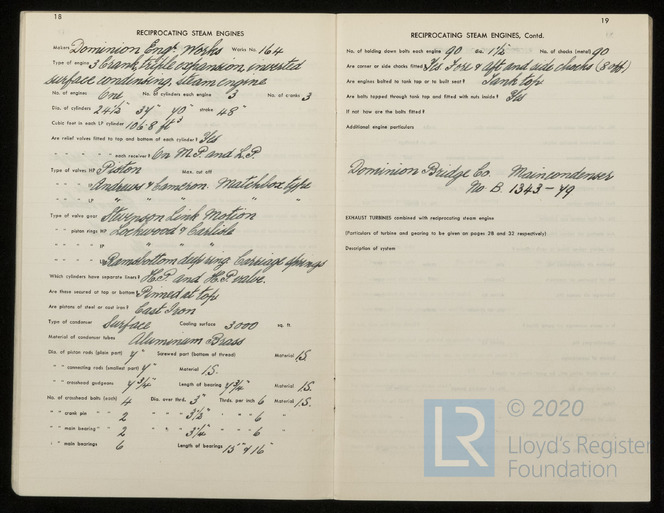 18
RECIPROCATING STEAM ENGINES
Makers Dominion Engr. Works Works No. 164
Type of engine 3 Crank, triple expansion, inverted
surface condensing steam engine
No. of engines One No. of cylinders each engine 3 No. of cranks 3
Dia. of cylinders 24½" 37" 70" stroke 48"
Cubic feet in each LP cylinder 106.8 ft³
Are relief valves fitted to top and bottom of each cylinder? Yes
" " " " each receiver? On M.P. and L.P.
Type of valves HP Piston Max. cut off
" " " Andrews & Cameron Matchbox type
" " " LP " " " "
Type of valve gear Stevenson Link Motion
" " piston rings HP Lockwood & Carlisle
" " " IP " " "
" " " Ramsbottom deep ring Carriage springs
Which cylinders have separate liners? H.P. and H.P. valve.
Are these secured at top or bottom? Pinned at top
Are pistons of steel or cast iron? Cast Iron
Type of condenser Surface Cooling surface 3000 sq. ft.
Material of condenser tubes Aluminium Brass
Dia. of piston rods (plain part) 7" Screwed part (bottom of thread) Material I.S.
" " connecting rods (smallest part) 7" Material I.S.
" " crosshead gudgeons 7¾" Length of bearing 7¾" Material I.S.
No. of crosshead bolts (each) 4 Dia. over thrd. 3" Thrds. per inch 6 Material I.S.
" " crank pin " " 2 " " " 3½" " " " 6 "
" " main bearing " " 2 " " " 3¼" " " " 6 "
" " main bearings 6 Length of bearings 15" & 16"
19
RECIPROCATING STEAM ENGINES, Contd.
No. of holding down bolts each engine 90 dia. 1½ No. of chocks (metal) 90
Are corner or side chocks fitted Yes Fore & aft and side chocks (8 off)
Are engines bolted to tank top or to built seat? Tank top
Are bolts tapped through tank top and fitted with nuts inside? Yes
If not how are the bolts fitted?
Additional engine particulars
Dominion Bridge Co. Main condenser
No B. 1343-49
EXHAUST TURBINES combined with reciprocating steam engine
(Particulars of turbine and gearing to be given on pages 28 and 32 respectively)
Description of system
LR © 2020
Lloyd's Register
Foundation